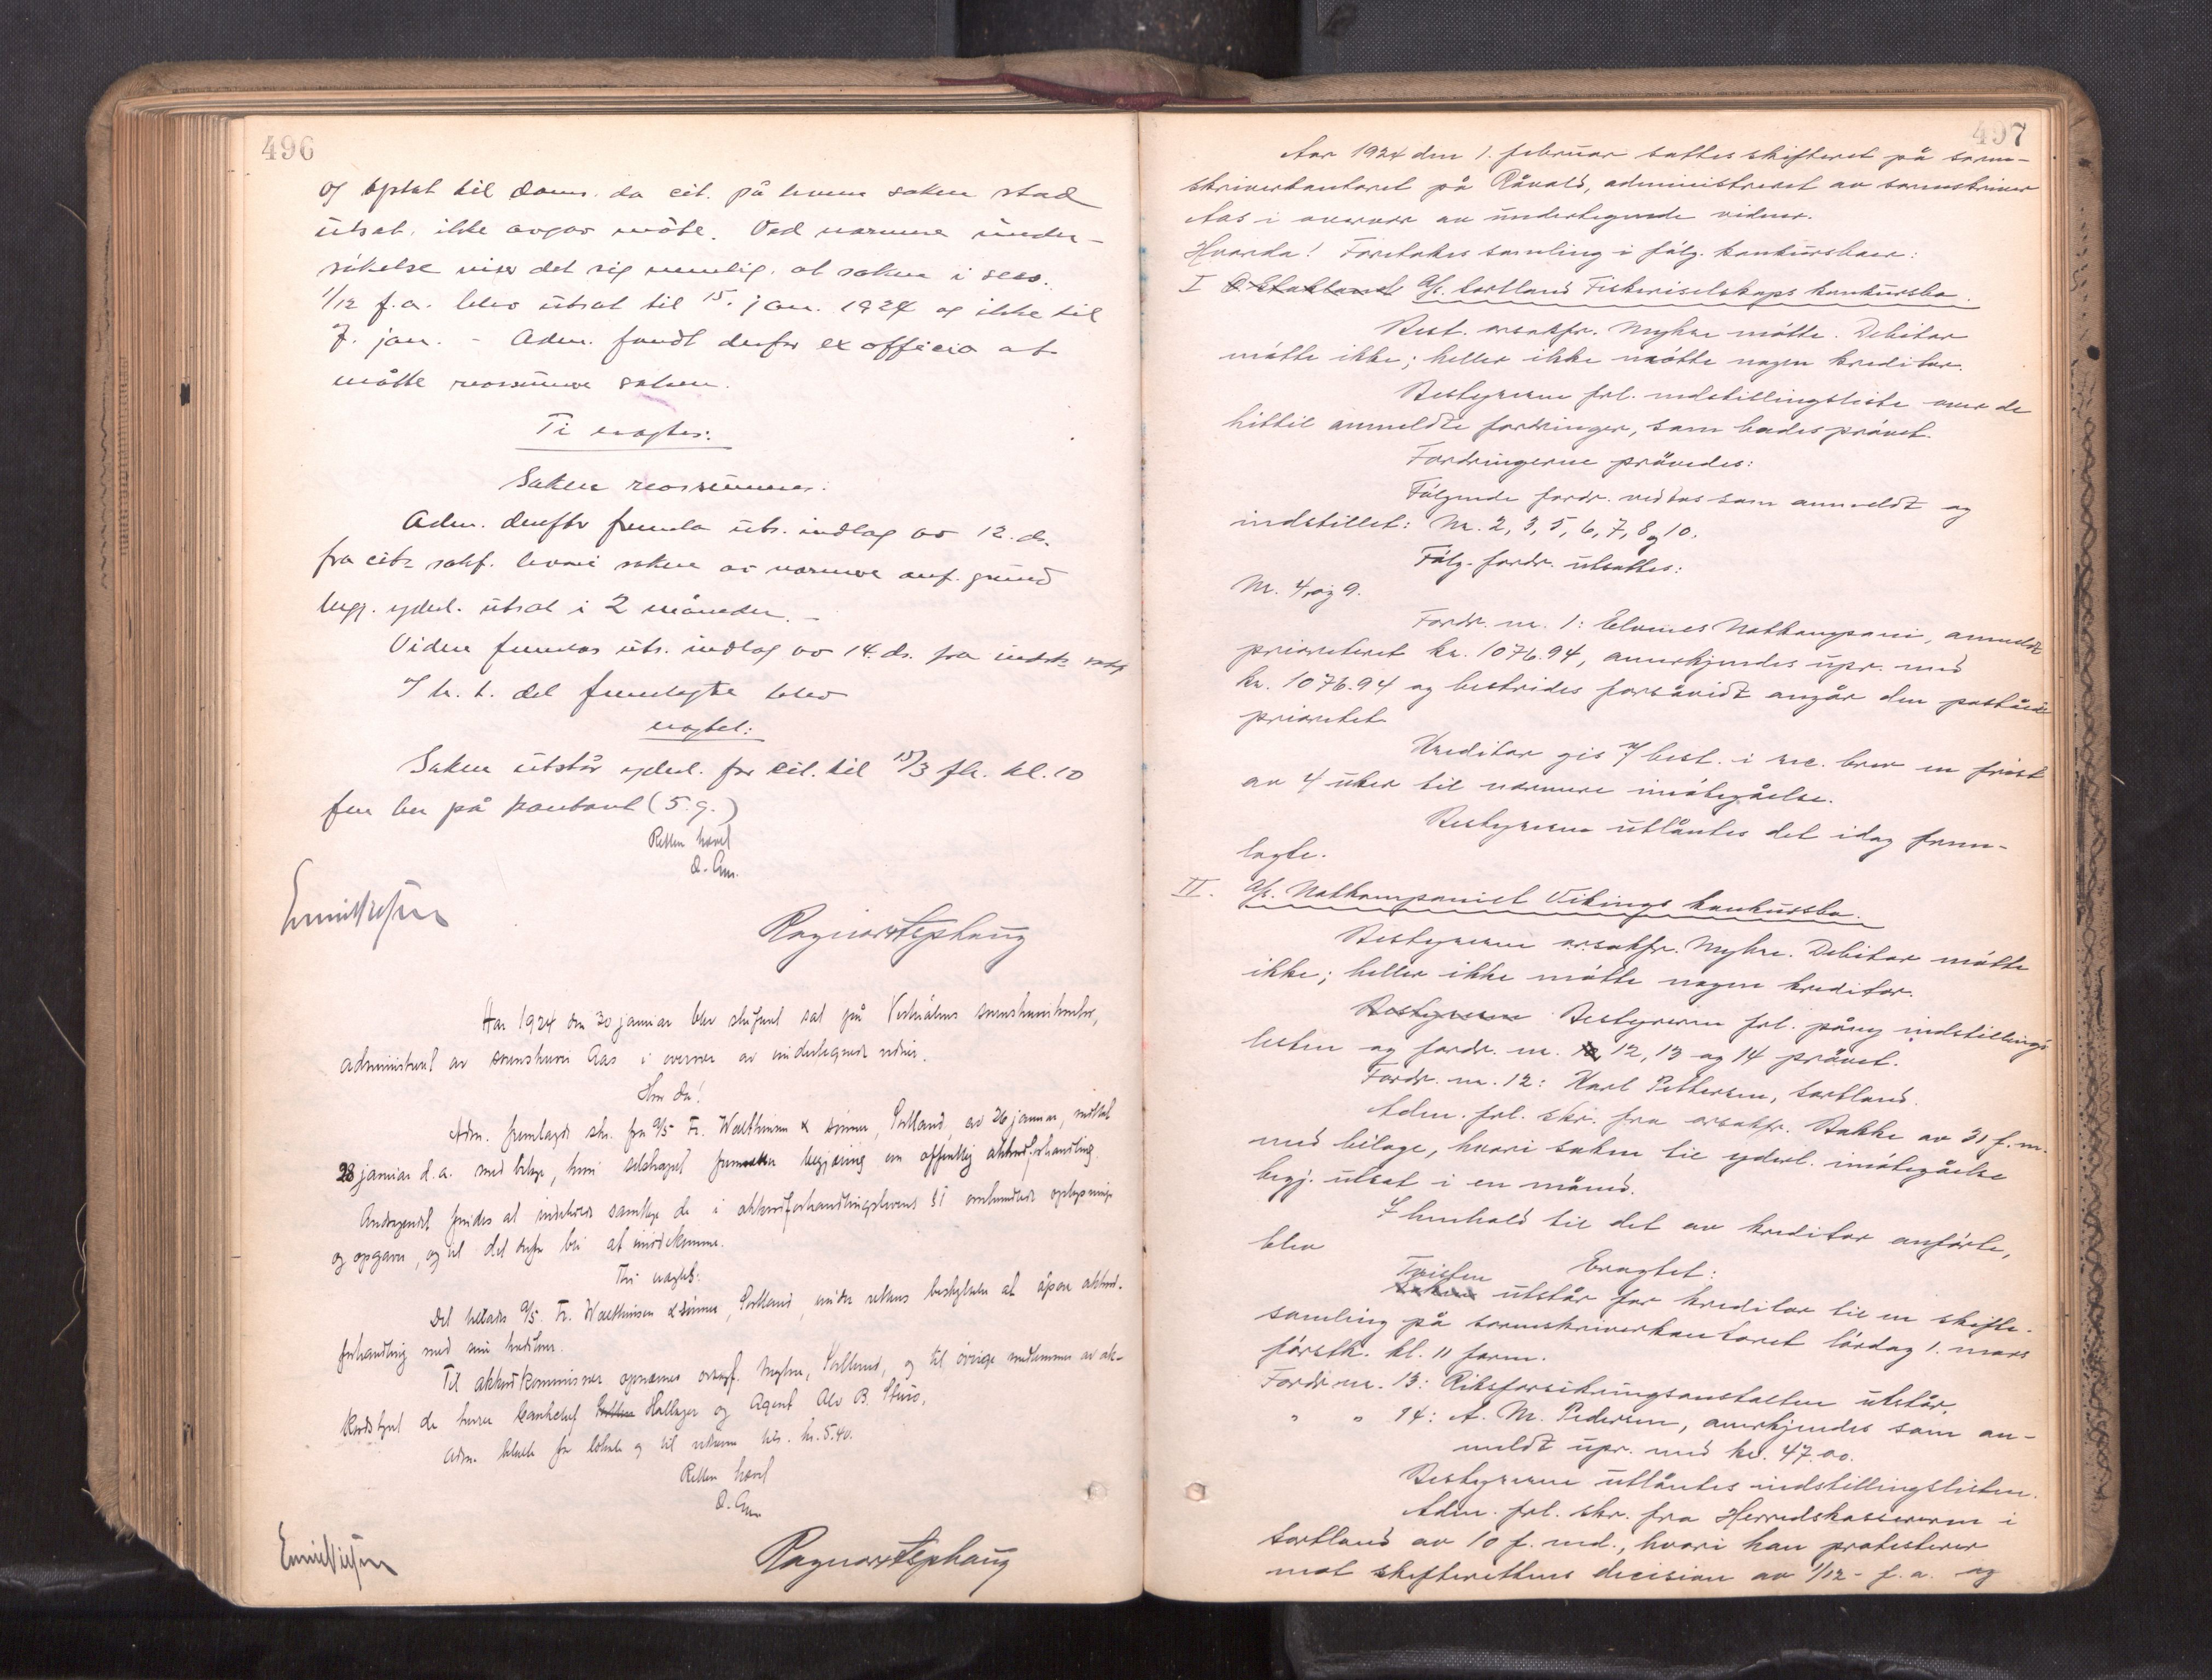 496
og optat til doms. da cit. på hvem saken stod
utsat, ikke avgav møte. Ved nærmere under-
søkelse viser det sig nemlig, at saken i sess.
1/12 f.a. blev utsat til 15. jan. 1924 og ikke til
7. jan. - Adm. fandt derfor ex officio at
måtte reassumere saken.
Ti eragtes:
Saken reassumeres.
Adm. derefter fremla uts. indlæg av 12. ds.
fra cit. sakf. hvori saken av nærmere anf. grund
begj. yderl. utsat i 2 måneder. -
Videre fremlas uts. indlæg av 14. ds. fra indst. sakf
I h. t. det fremlagte blev
eragtet:
Saken utstår yderl. for cit. til 15/3 fk. kl. 10
fm her på kontoret (5.g.)
Retten hævet
O. Aas.
Ragnar Asphaug
Aar 1924 den 30 januar blev skifteret sat på Vesterålens sorenskriverkontor,
administrert av sorenskriver Aas i overvær av undertegnede vidner.
Hvorda!
Adm. fremlagde skr. fra A/S Fr. Wolthinsen & sønner, Sortland, av 26 januar, mottat
28 januar d.a. med bilage, hvori selskapet fremsetter begjæring om offentlig akkordforhandling.
Andragendet findes at indeholde samtlige de i akkordforhandlingslovens §1 omhandlede oplysninger
og opgaver, og vil det derfor bli at imøtekomme.
Thi eragtes:
Det tillates A/S. Fr. Wolthinsen & sønner, Sortland, under rettens beskyttelse at åpne akkord-
forhandling med sine kreditorer.
Til akkordkommissær opnævnes orsakf. Myhre, Sortland, og til øvrige medlemmer av ak-
kordstyret de herrer bankchef Hallager og Agent Alv B. Stuvø.
Adm. betalte for lokale og til vidnerne tils. kr. 5.40.
Retten hævet
O. Aas
Ragnar Asphaug
497
Aar 1924 den 1. februar sattes skifteret på soren-
skriverkontoret på Råvold, administreret av sorenskriver
Aas i overvær av undertegnede vidner.
Hvorda! Foretokes samling i følg. konkursboer:
I A/S. Sortland Fiskeriselskaps konkursbo.
Best. orsakfr. Myhre møtte. Debitor
møtte ikke; heller ikke møtte nogen kreditor.
Bestyreren frl. indstillingsliste over de
hittil anmeldte fordringer, som bades prøvet.
Fordringerne prøvedes:
Følgende fordr. vedtas som anmeldt og
indstillet: Nr. 2, 3, 5, 6, 7, 8 og 10.
Følg. fordr. utsattes:
Nr. 4 og 9.
Fordr. nr. 1: Elvenes Notkompani, anmeldt
prioriteret kr. 1076.94, anerkjendes upr. med
kr. 1076.94 og bestrides forsåvidt angår den påståede
prioritet.
Kreditor gis v/ best. i rec. brev en frist
av 4 uker til nærmere imøtegåelse.
Bestyreren utlåntes det idag frem-
lagte.
II. A/S. Notkompaniet Vikings konkursbo.
Bestyreren orsakfr. Myhre. Debitor møtte
ikke; heller ikke møtte nogen kreditor.
Bestyreren Bestyreren frl. påny indstillings-
listen og fordr. nr. 12, 13 og 14 prøvet.
Fordr. nr. 12: Karl Pettersen, Sortland.
Adm. frl. skr. fra orsakfr. Bakke av 31 f.m.
med bilage, hvori saken til yderl. imøtegåelse
begj. utsat i en måned.
I henhold til det av kreditor anførte,
blev
Eragtet:
Tvisten
Saken utstår for kreditor til en skifte-
samling på sorenskriverkontoret lørdag 1. mars
førstk. kl. 11 form.
Fordr nr. 13: Riksforsikringsanstalten utstår.
" " 14: A. M. Pedersen, anerkjendes som an-
meldt upr. med kr. 47.00.
Bestyreren utlåntes indstillingslisten.
Adm. frl. skr. fra Herredskassereren i
Sortland av 10 f. md., hvori han protesterer
mot skifterettens decision av 1/12 - f.a. og